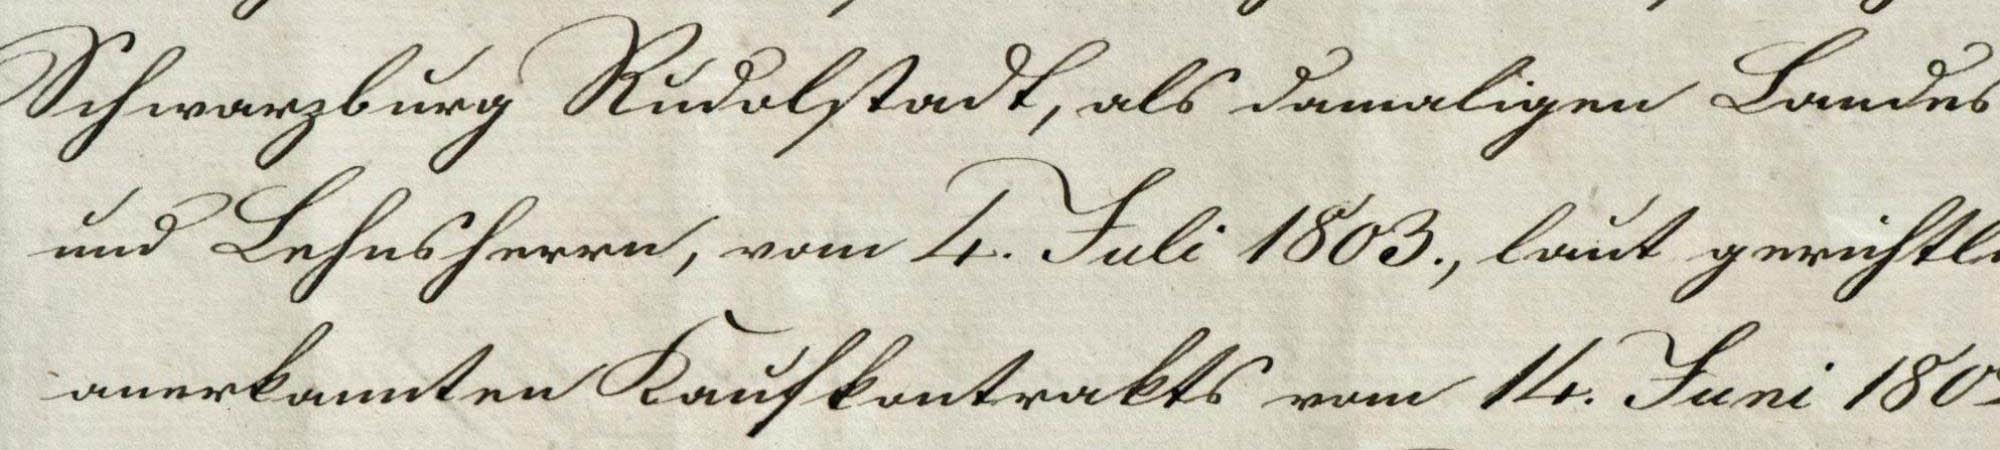 Schwarzburg Rudolstadt, als damaligen Landes
und Lehnsherrn, vom 4. Juli 1803., laut gerichtli
anerkannten Kaufkontrakts vom 14. Juni 180